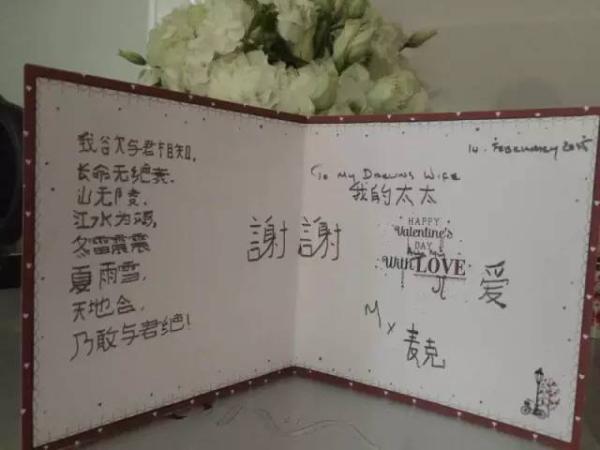 我欲与君相知,
长命无绝衰.
山无陵,
江水为竭,
冬雷震震
夏雨雪,
天地合,
乃敢与君绝!
謝謝
14. FEBRUARY
To My Darling Wife
我的太太
HAPPY
Valentine's
DAY
With LOVE
爱
M x
麦克